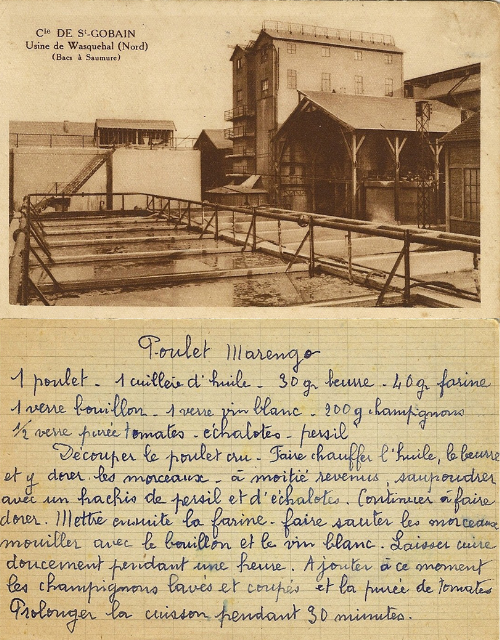 Cie DE St-GOBAIN
Usine de Wasquehal (Nord)
(Bacs à Saumure)
Poulet Marengo
1 poulet - 1 cuillère d'huile - 30 gr beurre - 40 gr farine
1 verre bouillon - 1 verre vin blanc - 200 g champignons
1/2 verre purée tomates - échalotes - persil
Découper le poulet cru - Faire chauffer l'huile, le beurre
et y dorer les morceaux - à moitié revenus, saupoudrer
avec un hachis de persil et d'échalotes. Continuer à faire
dorer. Mettre ensuite la farine - faire sauter les morceaux
mouiller avec le bouillon et le vin blanc. Laisser cuire
doucement pendant une heure. Ajouter à ce moment
les champignons lavés et coupés et la purée de tomates
Prolonger la cuisson pendant 30 minutes.